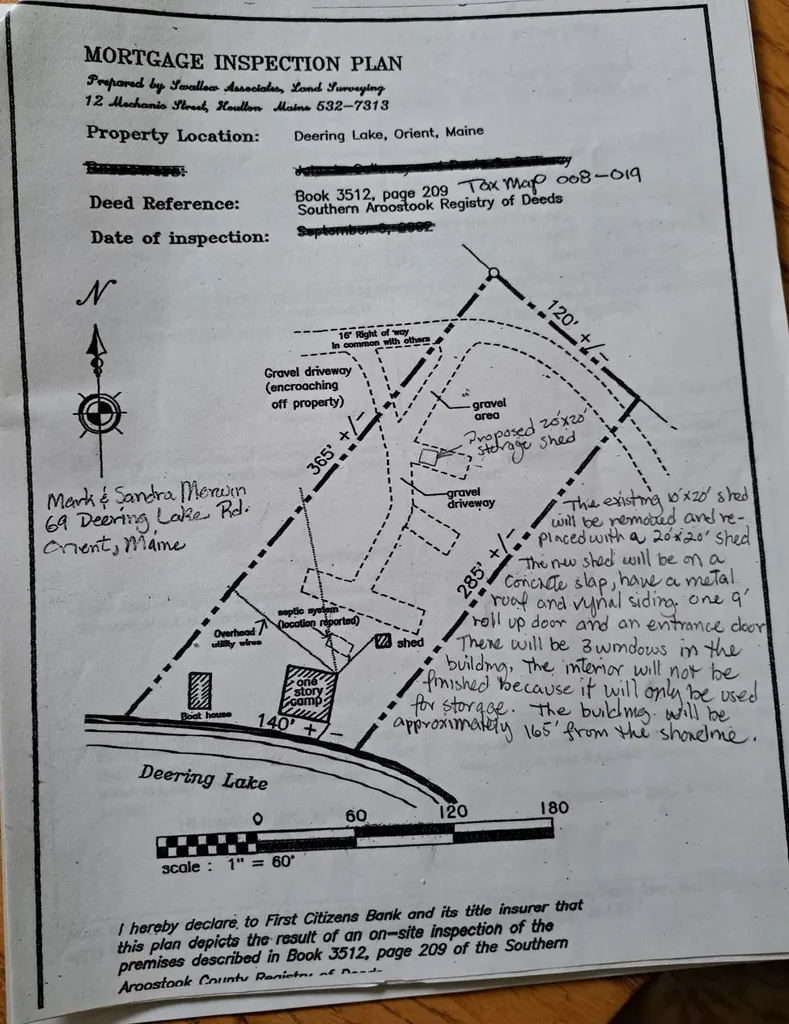 MORTGAGE INSPECTION PLAN
Prepared by Swallow Associates, Land Surveying
12 Mechanic Street, Houlton Maine 532-7313
Property Location: Deering Lake, Orient, Maine
Borrowers:
Deed Reference: Book 3512, page 209 Tax Map 008-019
Southern Aroostook Registry of Deeds
Date of inspection: September 6, 2002
N
120' +/-
16' Right of way
in common with others
Gravel driveway
(encroaching
off property)
gravel
area
365' +/-
Proposed 20'x20'
storage shed
gravel
driveway
Mark & Sandra Merwin
69 Deering Lake Rd.
Orient, Maine
285' +/-
The existing 10'x20' shed
will be removed and re-
placed with a 20'x20' shed
The new shed will be on a
concrete slap, have a metal
roof and vynal siding, one 9'
roll up door and an entrance door
There will be 3 windows in the
building. The interior will not be
finished because it will only be used
for storage. The building will be
approximately 165' from the shoreline.
septic system
(location reported)
Overhead
utility wires
shed
one
story
camp
Boat house
140' +/-
Deering Lake
0 60 120 180
scale : 1" = 60'
I hereby declare to First Citizens Bank and its title insurer that
this plan depicts the result of an on-site inspection of the
premises described in Book 3512, page 209 of the Southern
Aroostook County Registry of Deeds